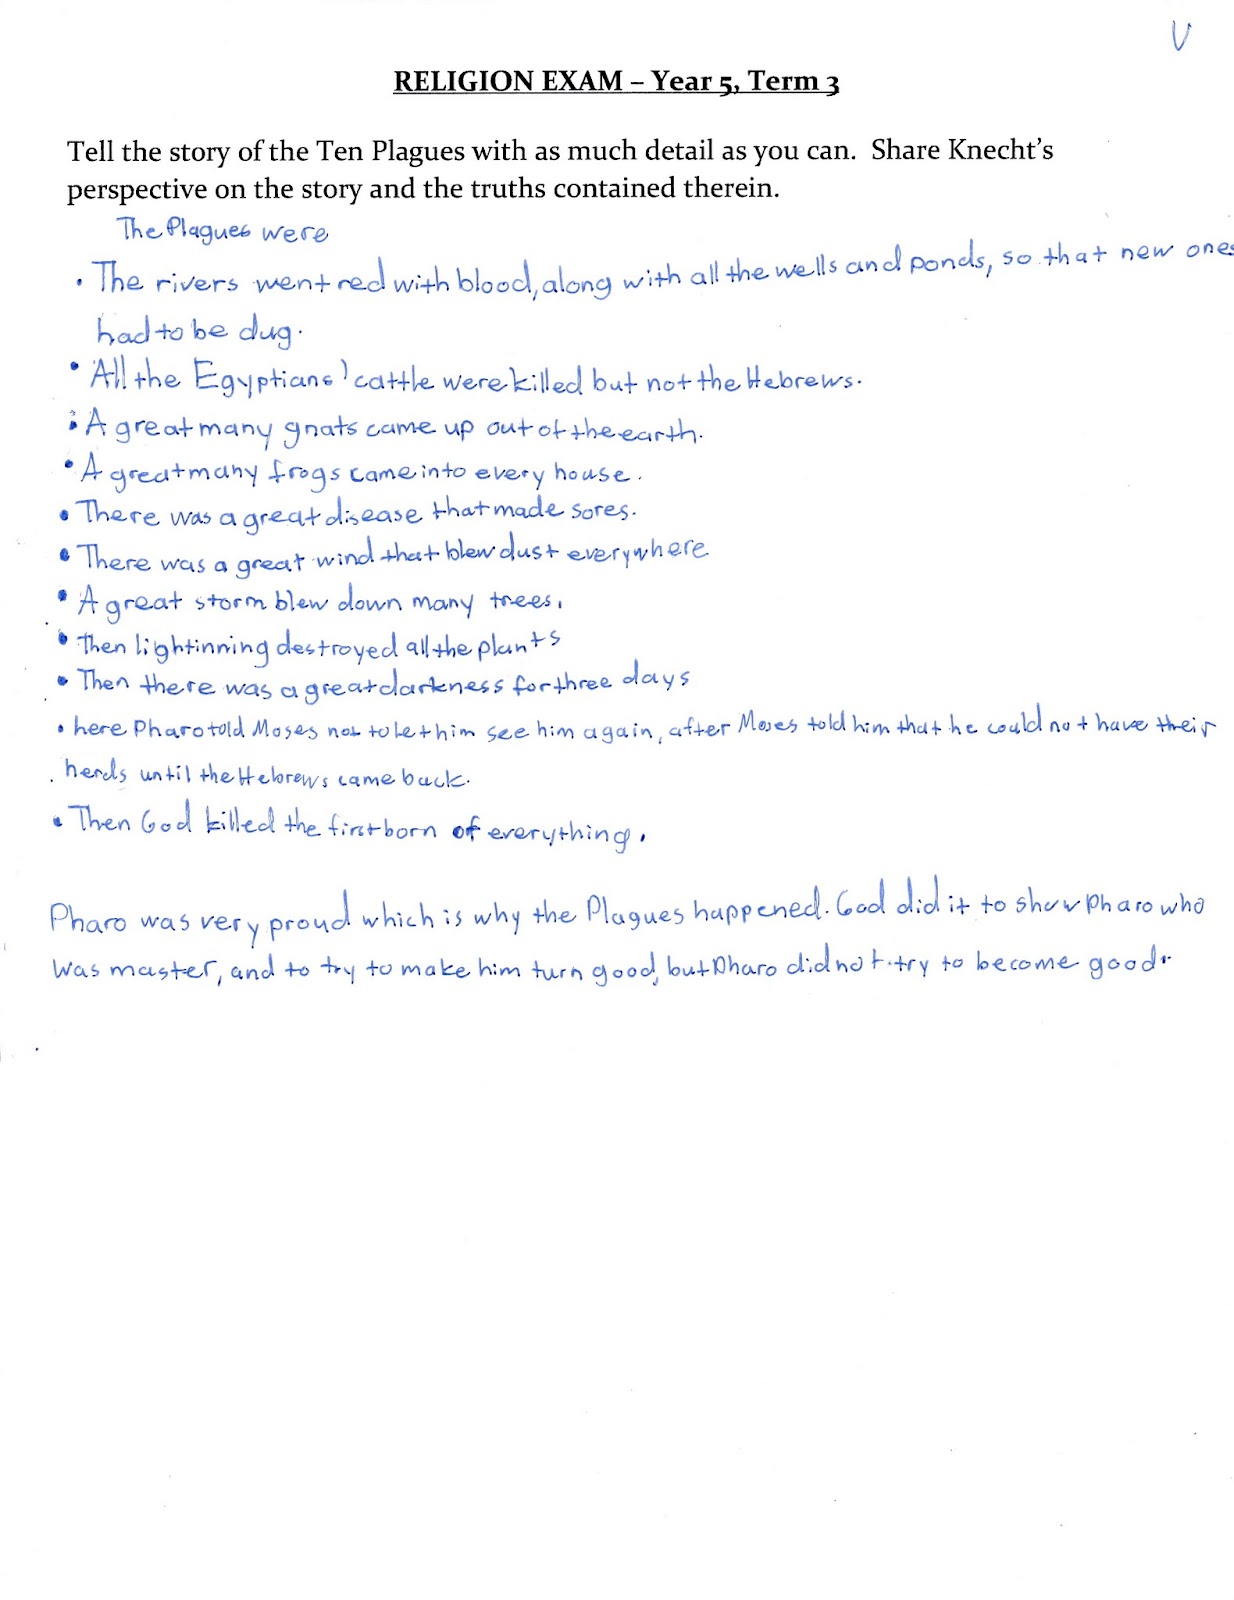 V
RELIGION EXAM – Year 5, Term 3
Tell the story of the Ten Plagues with as much detail as you can. Share Knecht's
perspective on the story and the truths contained therein.
The Plagues were
• The rivers went red with blood, along with all the wells and ponds, so that new ones
had to be dug.
• All the Egyptians' cattle were killed but not the Hebrews.
• A great many gnats came up out of the earth.
• A great many frogs came into every house.
• There was a great disease that made sores.
• There was a great wind that blew dust everywhere
• A great storm blew down many trees.
• Then lightinning destroyed all the plants
• Then there was a great darkness for three days
• here Pharo told Moses not to let him see him again, after Moses told him that he could not have their
herds until the Hebrews came back.
• Then God killed the first born of everything.
Pharo was very proud which is why the Plagues happened. God did it to show Pharo who
was master, and to try to make him turn good, but Pharo did not try to become good.